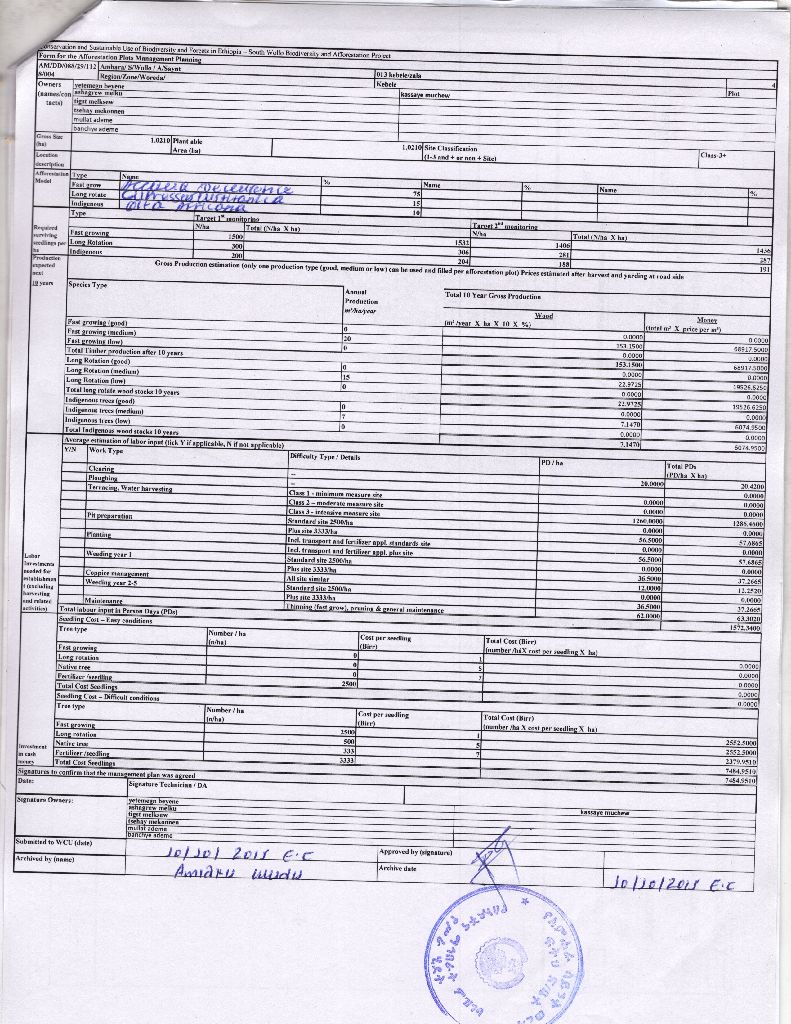 Conservation and Sustainable Use of Biodiversity and Forests in Ethiopia – South Wollo Biodiversity and Afforestation Project
Form for the Afforestation Plots Management Planning
AM/DD/088/29/112 Amhara/ S/Wollo / A/Saynt 013 kebele/zala 4
8/004 Region/Zone/Woreda/ Kebele Plot
Owners (names/contacts) yetemegn beyene kassaye muchew
ashagrew melku
tigst melksew
tsehay mekonnen
mullat ademe
banchye ademe
Gross Size (ha) 1.0210 Plant able Area (ha) 1.0210 Site Classification (1-3 and + or non + Site) Class-3+
Location description
Afforestation Model Type Name % Name % Name %
Fast grow 75
Long rotate 15
Indigenous 10
Required surviving seedlings per ha Type Target 1st monitoring Target 2nd monitoring
N/ha Total (N/ha X ha) N/ha Total (N/ha X ha)
Fast growing 1500 1532 1406 1436
Long Rotation 300 306 281 287
Indigenous 200 204 188 191
Production expected next 10 years Gross Production estimation (only one production type (good, medium or low) can be used and filled per afforestation plot) Prices estimated after harvest and yarding at road side
Species Type Annual Production m³/ha/year Total 10 Year Gross Production
Wood (m³/year X ha X 10 X %) Money (total m³ X price per m³)
Fast growing (good) 0 0.0000 0.0000
Fast growing (medium) 20 153.1500 68917.5000
Fast growing (low) 0 0.0000 0.0000
Total Timber production after 10 years 153.1500 68917.5000
Long Rotation (good) 0 0.0000 0.0000
Long Rotation (medium) 15 22.9725 19526.6250
Long Rotation (low) 0 0.0000 0.0000
Total long rotate wood stocks 10 years 22.9725 19526.6250
Indigenous trees (good) 0 0.0000 0.0000
Indigenous trees (medium) 7 7.1470 6074.9500
Indigenous trees (low) 0 0.0000 0.0000
Total Indigenous wood stocks 10 years 7.1470 6074.9500
Labor Investments needed for establishment (excluding harvesting and related activities) Average estimation of labor input (tick Y if applicable, N if not applicable)
Y/N Work Type Difficulty Type / Details PD / ha Total PDs (PD/ha X ha)
Clearing -- 20.0000 20.4200
Ploughing -- 0.0000
Terracing, Water harvesting Class 1 - minimum measure site 0.0000 0.0000
Class 2 – moderate measure site 0.0000 0.0000
Class 3 - intensive measure site 1260.0000 1286.4600
Pit preparation Standard site 2500/ha 0.0000 0.0000
Plus site 3333/ha 56.5000 57.6865
Planting Incl. transport and fertilizer appl. standards site 0.0000
Incl. transport and fertilizer appl. plus site 56.5000 57.6865
Weeding year 1 Standard site 2500/ha 0.0000 0.0000
Plus site 3333/ha 36.5000 37.2665
Coppice management All site similar 12.0000 12.2520
Weeding year 2-5 Standard site 2500/ha 0.0000 0.0000
Plus site 3333/ha 36.5000 37.2665
Maintenance Thinning (fast grow), pruning & general maintenance 62.0000 63.3020
Total labour input in Person Days (PDs) 1572.3400
Investment in cash money Seedling Cost – Easy conditions
Tree type Number / ha (n/ha) Cost per seedling (Birr) Total Cost (Birr) (number /haX cost per seedling X ha)
Fast growing 0 1 0.0000
Long rotation 0 5 0.0000
Native tree 0 7 0.0000
Fertilizer /seedling 2500 0.0000
Total Cost Seedlings 0.0000
Seedling Cost – Difficult conditions
Tree type Number / ha (n/ha) Cost per seedling (Birr) Total Cost (Birr) (number /ha X cost per seedling X ha)
Fast growing 2500 1 2552.5000
Long rotation 500 5 2552.5000
Native tree 333 7 2379.9510
Fertilizer /seedling 3333 7484.9510
Total Cost Seedlings 7484.9510
Signatures to confirm that the management plan was agreed
Date: Signature Technician / DA
Signature Owners: yetemegn beyene kassaye muchew
ashagrew melku
tigst melksew
tsehay mekonnen
mullat ademe
banchye ademe
Submitted to WCU (date) 10/10/2015 E.C Approved by (signature)
Archived by (name) Archive date 10/10/2015 E.C